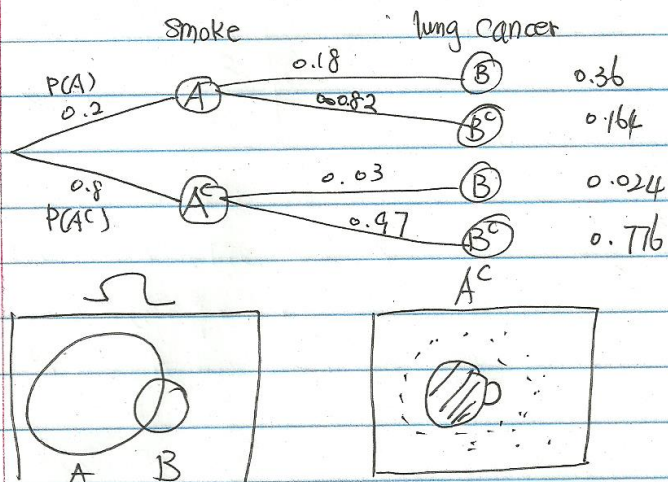 smoke lung cancer
P(A) 0.18 B 0.36
0.2 A 0.82 Bᶜ 0.164
0.8 Aᶜ 0.03 B 0.024
P(Aᶜ) 0.97 Bᶜ 0.776
Ω Aᶜ
A B